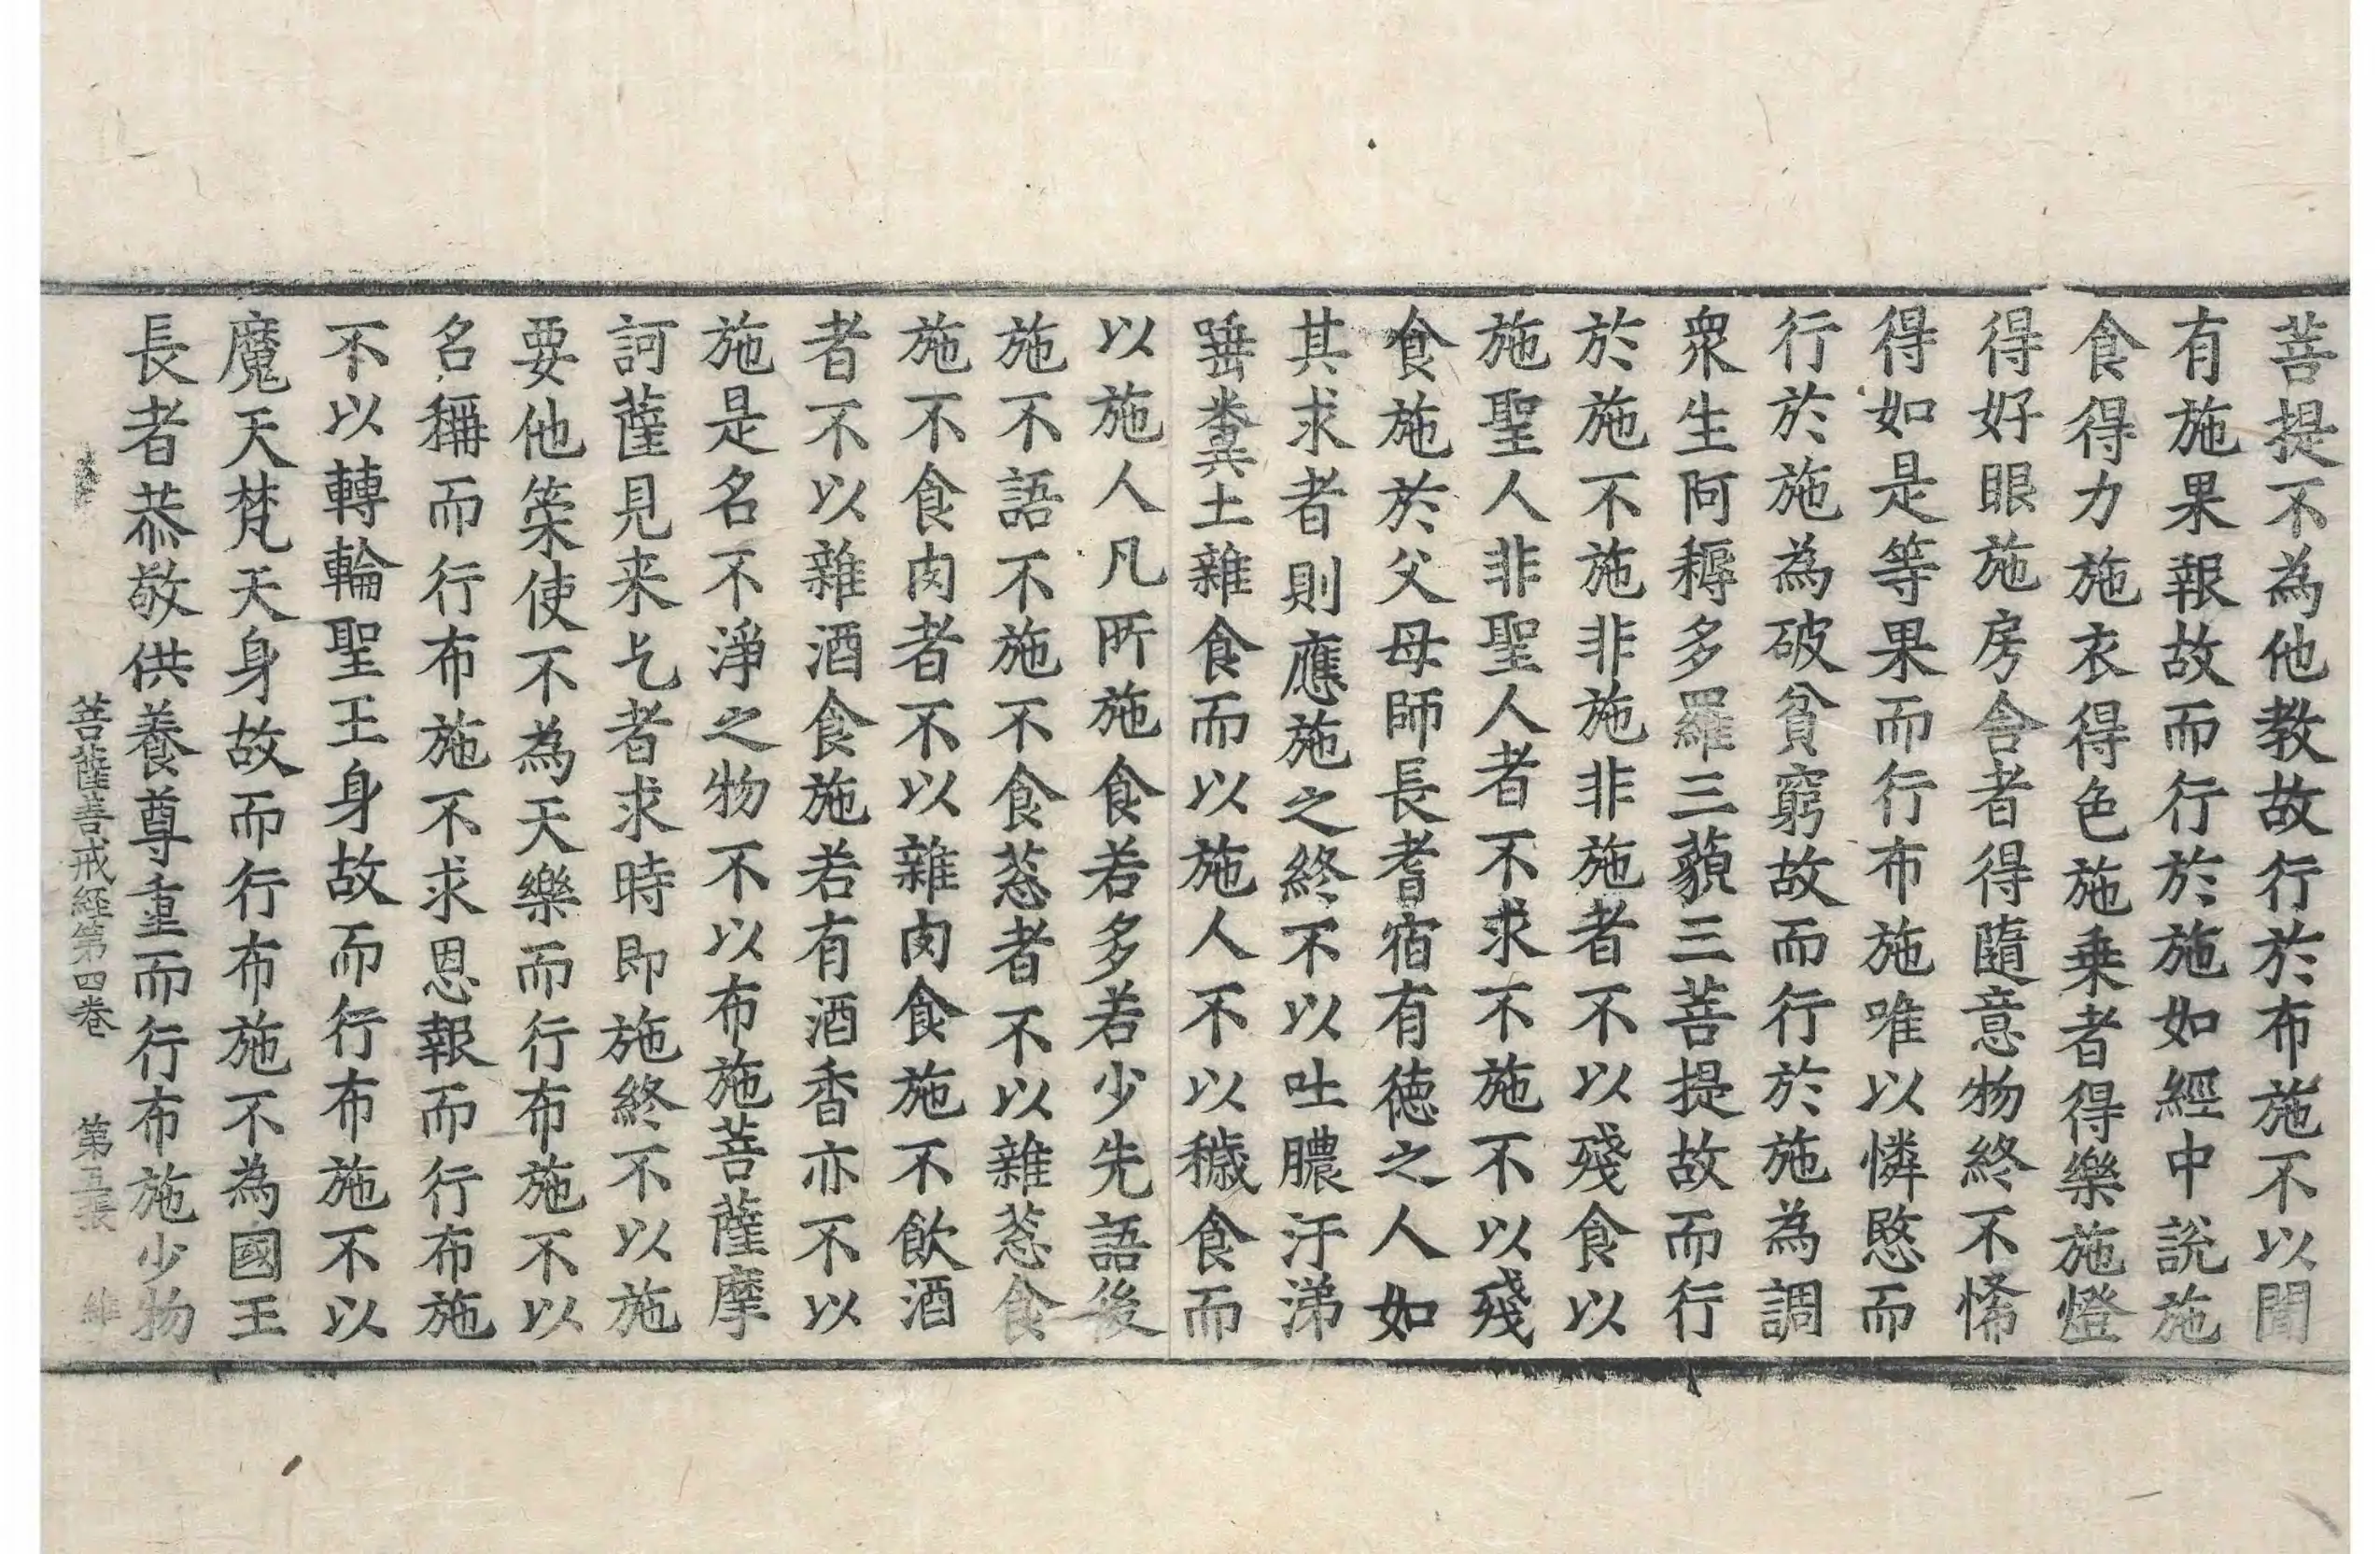 菩提不為他教故行於布施不以聞
有施果報故而行於施如經中說施
食得力施衣得色施乗者得樂施燈
得好眼施房舍者得隨意物終不悕
得如是等果而行布施唯以憐愍而
行於施為破貧窮故而行於施為調
衆生阿耨多羅三藐三菩提故而行
於施不施非施非施者不以殘食以
施聖人非聖人者不求不施不以殘
食施於父母師長耆宿有徳之人如
其求者則應施之終不以吐膿汙涕
唾糞土雜食而以施人不以穢食而
以施人凡所施食若多若少先語後
施不語不施不食葱者不以雜葱食
施不食肉者不以雜肉食施不飲酒
者不以雜酒食施若有酒香亦不以
施是名不淨之物不以布施菩薩摩
訶薩見来乞者求時即施終不以施
要他策使不為天樂而行布施不以
名稱而行布施不求恩報而行布施
不以轉輪聖王身故而行布施不以
魔天梵天身故而行布施不為國王
長者恭敬供養尊重而行布施少物
菩薩善戒經第四卷 第五張